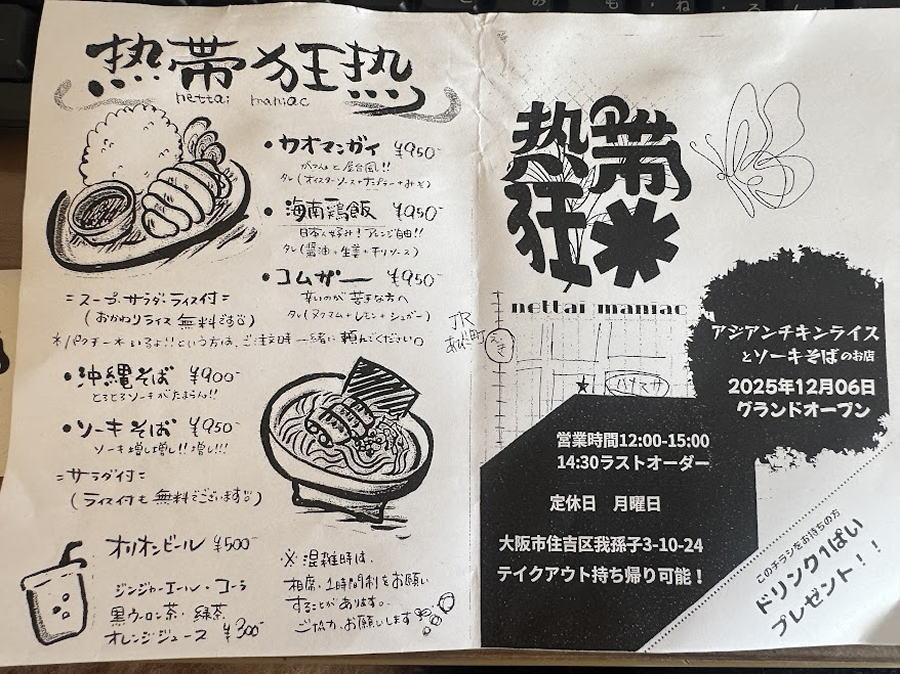 熱帯狂热
nettai maniac
・カオマンガイ ¥950-
がつんと屋台風!!
タレ(オイスターソース+ナンプラー+みそ)
・海南鶏飯 ¥950-
日本人好み!アレンジ自由!!
タレ(醤油+生姜+チリソース)
・コムザー ¥950-
辛いのが苦手な方へ
タレ(ヌクマム+レモン+シュガー)
=スープ・サラダ・ライス付=
(おかわりライス無料です)
*パクチーいるよ!!という方は、ご注文時一緒に頼んでください。
・沖縄そば ¥900-
とろとろソーキがたまらん!!
・ソーキそば ¥950-
ソーキ増し増し!!増し!!!
=サラダ付=
(ライス付も無料でございます)
オリオンビール ¥500-
ジンジャーエール・コーラ
黒ウーロン茶・緑茶
オレンジジュース ¥300-
※混雑時は、
相席・1時間制をお願い
することがあります。
ご協力、お願いします
熱帯
狂
nettai maniac
JR
あびこ町
えき
ハナマサ
アジアンチキンライス
とソーキそばのお店
2025年12月06日
グランドオープン
営業時間12:00-15:00
14:30ラストオーダー
定休日 月曜日
大阪市住吉区我孫子3-10-24
テイクアウト持ち帰り可能!
このチラシをお持ちの方
ドリンク1ぱい
プレゼント!!